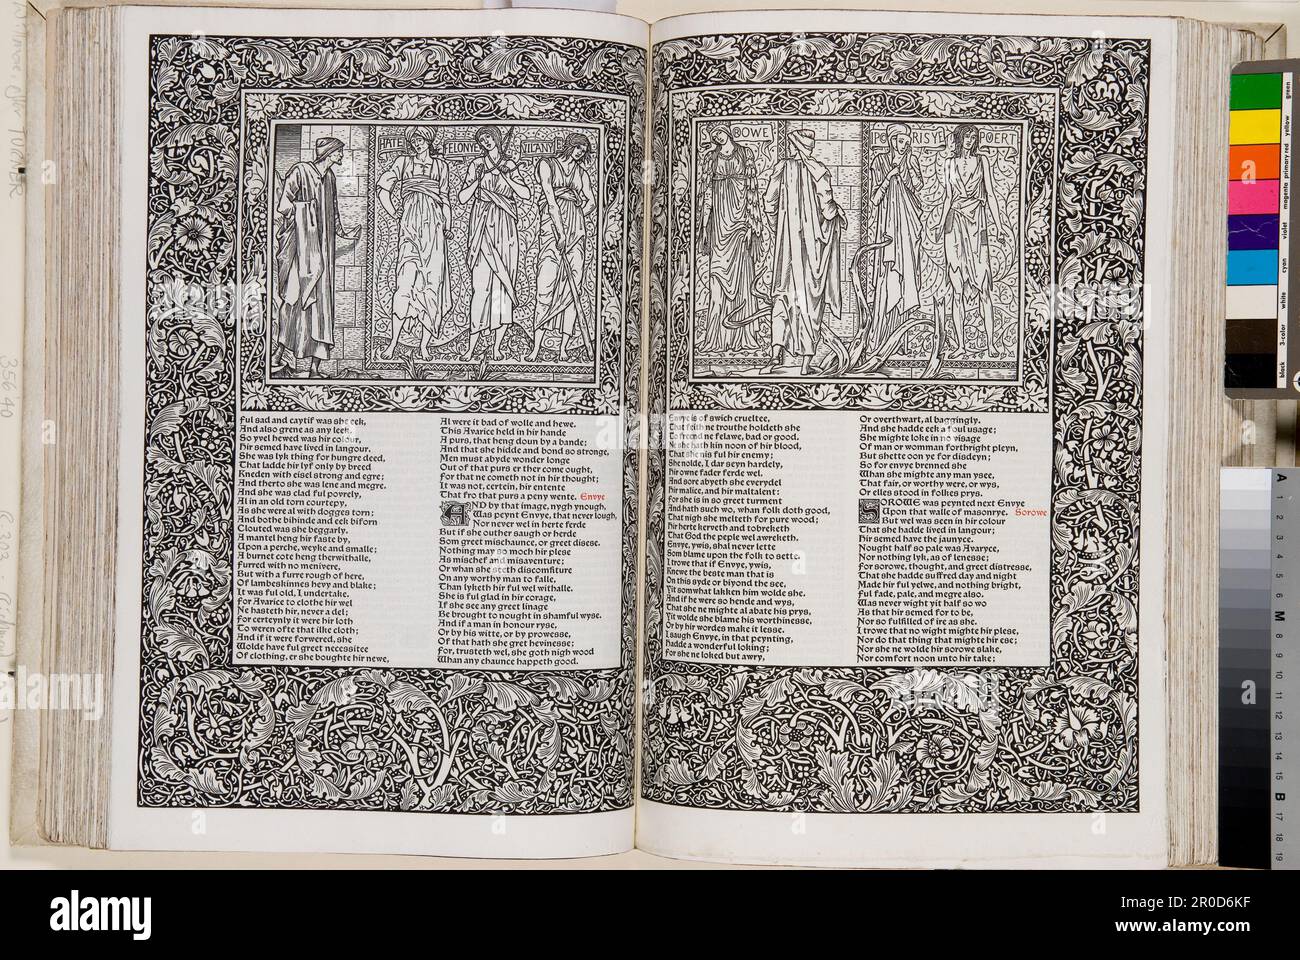 HATE
FELONYE
VILANY
ful sad and caytif was she eek,
And also grene as any leek.
So yvel hewed was hir colour,
Hir semed have lived in langour.
She was lyk thing for hungre deed,
That ladde hir lyf only by breed
Kneden with eisel strong and egre;
And therto she was lene and megre.
And she was clad ful povrely,
Al in an old torn courtepy,
As she were al with dogges torn;
And bothe bihinde and eek biforn
Clouted was she beggarly.
A mantel heng hir faste by,
Upon a perche, weyke and smalle;
A burnet cote heng therwithalle,
furred with no menivere,
But with a furre rough of here,
Of lambeskinnes hevy and blake;
It was ful old, I undertake.
for Avarice to clothe hir wel
Ne hasteth hir, never a del;
For certeynly it were hir loth
To weren ofte that ilke cloth;
And if it were forwered, she
Wolde have ful greet necessitee
Of clothing, er she boughte hir newe,
Al were it bad of wolle and hewe.
This Avarice held in hir hande
A purs, that heng doun by a bande;
And that she hidde and bond so stronge,
Men must abyde wonder longe
Out of that purs er ther come ought,
for that ne cometh not in hir thought;
It was not, certein, hir entente
That fro that purs a peny wente. Envye
AND by that image, nygh ynough,
Was peynt Envye, that never lough,
Nor never wel in herte ferde
But if she outher saugh or herde
Som greet mischaunce, or greet disese.
Nothing may so moch hir plese
As mischef and misaventure;
Or whan she seeth discomfiture
On any worthy man to falle,
Than lyketh hir ful wel withalle.
She is ful glad in hir corage,
If she see any greet linage
Be brought to nought in shamful wyse.
And if a man in honour ryse,
Or by his witte, or by prowesse,
Of that hath she gret hevinesse;
for, trusteth wel, she goth nigh wood
Whan any chaunce happeth good.
ROWE
RISYE
POERT
Envye is of swich crueltee,
That feith ne trouthe holdeth she
To freend ne felawe, bad or good.
Ne she hath kin noon of hir blood,
That she nis ful hir enemy;
She nolde, I dar seyn hardely,
Hir owne fader ferde wel.
And sore abyeth she everydel
Hir malice, and hir maltalent:
For she is in so greet turment
And hath such wo, whan folk doth good,
That nigh she melteth for pure wood;
Hir herte kerveth and tobreketh
That God the peple wel awreketh.
Envye, ywis, shal never lette
Som blame upon the folk to sette.
I trowe that if Envye, ywis,
Knewe the beste man that is
On this syde or biyond the see,
Yit somwhat lakken him wolde she.
And if he were so hende and wys,
That she ne mighte al abate his prys,
Yit wolde she blame his worthinesse,
Or by hir wordes make it lesse.
I saugh Envye, in that peynting,
Hadde a wonderful loking;
For she ne loked but awry,
Or overthwart, al baggingly.
And she hadde eek a foul usage;
She mighte loke in no visage
Of man or womman forthright pleyn,
But shette oon ye for disdeyn;
So for envye brenned she
Whan she mighte any man ysee,
That fair, or worthy were, or wys,
Or elles stood in folkes prys.
SOROWE was peynted next Envye
Upon that walle of masonrye. Sorowe
But wel was seen in hir colour
That she hadde lived in langour;
Hir semed have the jaunyce.
Nought half so pale was Avaryce,
Nor nothing lyk, as of lenesse;
for sorowe, thought, and greet distresse,
That she hadde suffred day and night
Made hir ful yelwe, and nothing bright,
Ful fade, pale, and megre also.
Was never wight yit half so wo
As that hir semed for to be,
Nor so fulfilled of ire as she.
I trowe that no wight mighte hir plese,
Nor do that thing that mighte hir ese;
Nor she ne wolde hir sorowe slake,
Nor comfort noon unto hir take;
green
yellow
primary red
magenta
violet
cyan
white
3-color
black
A 1 2 3 4 5 6 M 8 9 10 11 12 13 14 15 B 17 18 19
35640
alamy
Image ID: 2R0D6KF
www.alamy.com